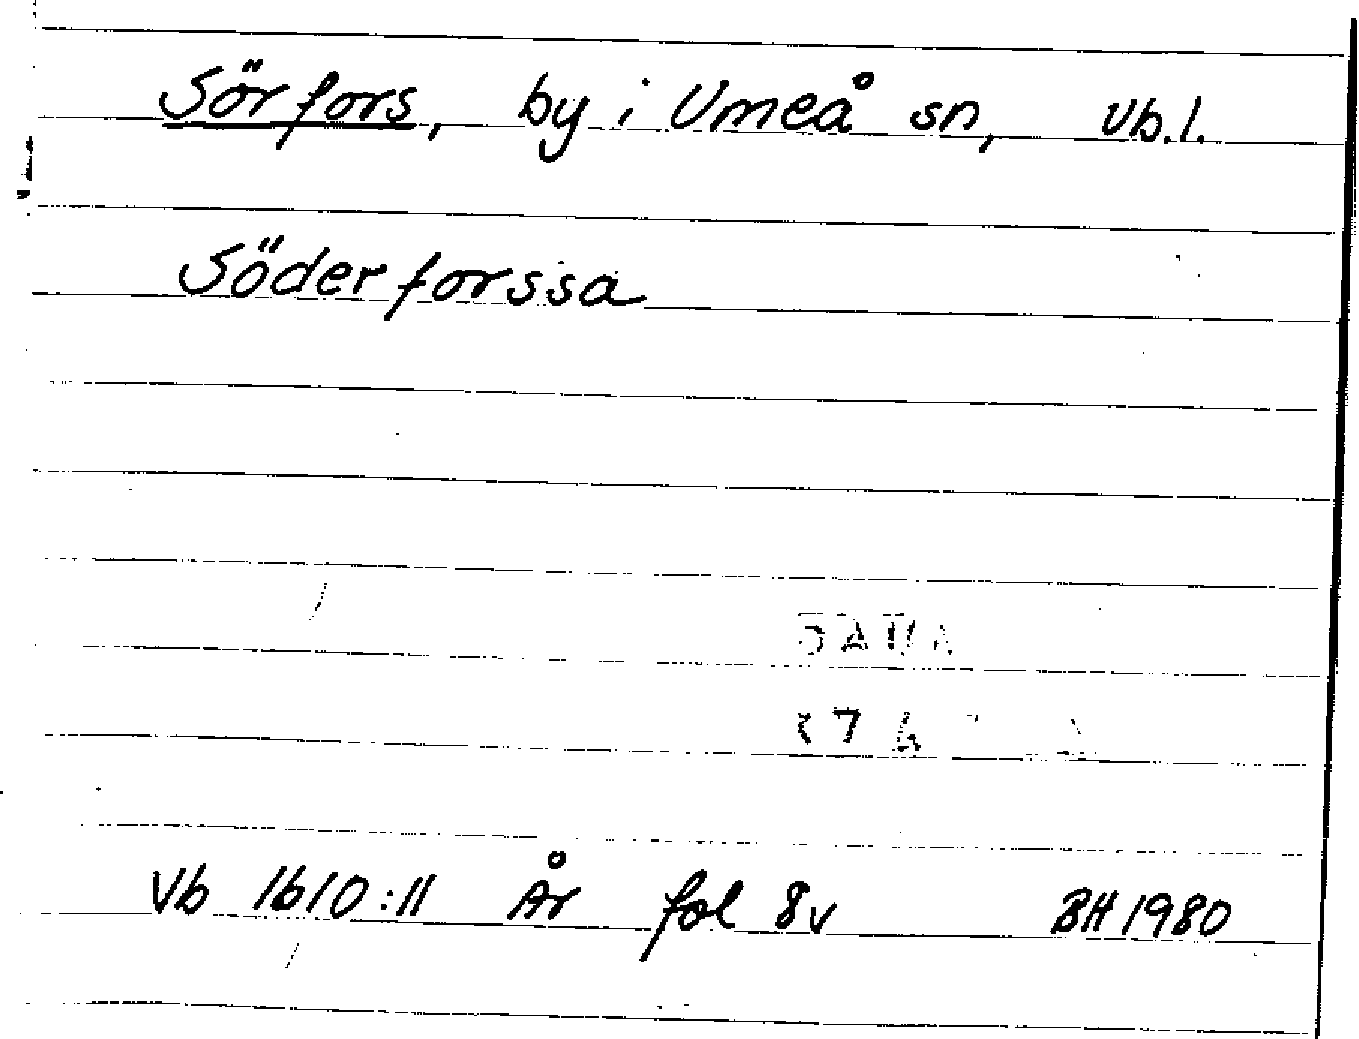 Sörfors, by i Umeå sn, Vb.l.
Söderforssa
Vb 1610:11 År fol 8v BH 1980